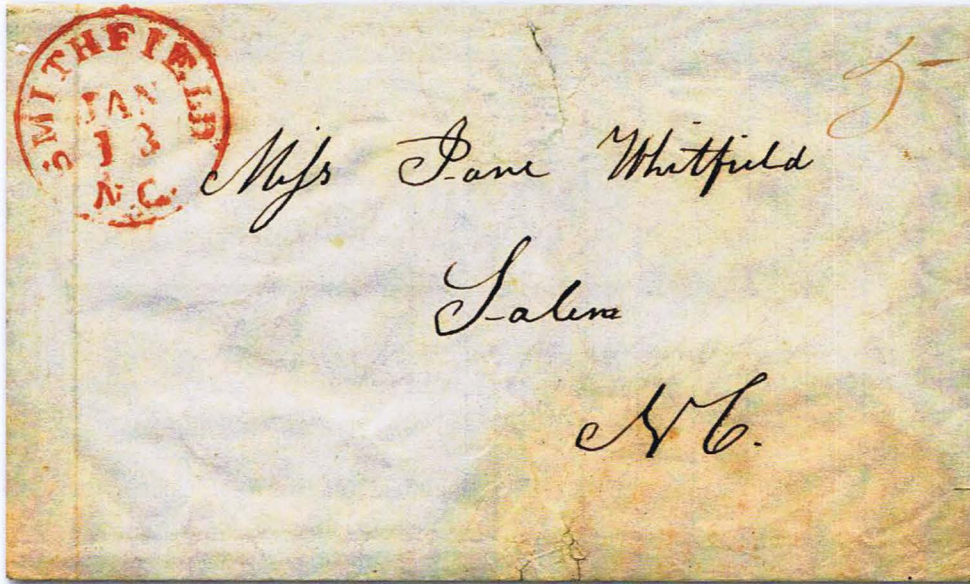 SMITHFIELD
JAN
13
N.C.
5
Miss Jane Whitfield
Salem
NC.